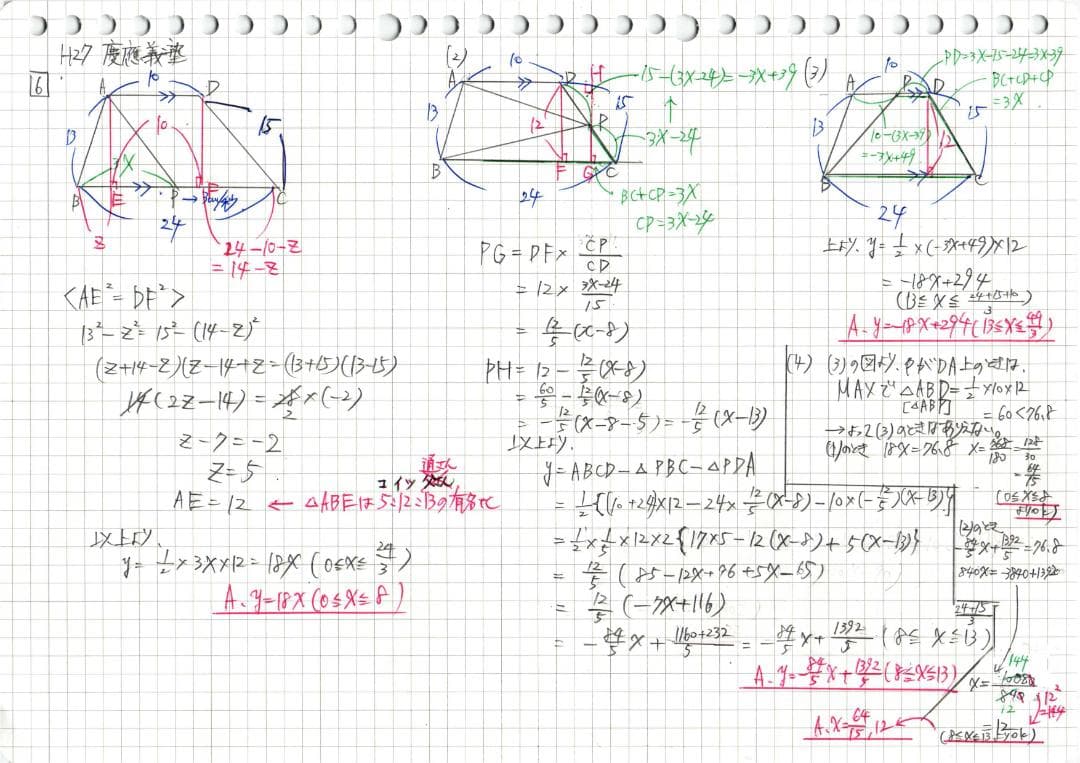 H27 慶應義塾
6
A
10
D
13
15
10
x
B
E
P
F
C
→ 3cm/秒
24
z
24-10-z
= 14-z
<AE² = DF²>
13²-z² = 15²-(14-z)²
(z+14-z)(z-14+z) = (13+15)(13-15)
14(2z-14) = 28×(-2)
2
z-7 = -2
z = 5
AE = 12 ← △ABEは5:12:13の有名七
コイツ
以上より、
y = 1/2 × 3x × 12 = 18x (0≦x≦24/3)
A. y=18x (0≦x≦8)
(2)
A
10
D
H
15-(3x-24) = -3x+39
13
12
15
P
3x-24
B
F
G
C
24
BC+CP=3x
CP=3x-24
PG = DF × CP/CD
= 12 × 3x-24/15
= 12/5(x-8)
PH = 12 - 12/5(x-8)
= 60/5 - 12/5(x-8)
= -12/5(x-8-5) = -12/5(x-13)
以上より、
y = ABCD - △PBC - △PDA
= 1/2{(10+24)×12-24×12/5(x-8)-10×(-12/5)(x-13)}
= 1/2×1/5×12×2{17×5-12(x-8)+5(x-13)}
= 12/5(85-12x+96+5x-65)
= 12/5(-7x+116)
= -84/5x + 1160+232/5 = -84/5x + 1392/5 (8≦x≦13)
24+15/3
A. y=-84/5x+1392/5 (8≦x≦13)
(3)
PD=3x-15-24=3x-39
A
10
P
D
BC+CD+DP
=3x
13
15
10-(3x-39)
=-3x+49
12
B
C
24
上より、y = 1/2×(-3x+49)×12
= -18x+294
(13≦x≦24+15+10/3)
A. y=-18x+294 (13≦x≦49/3)
(4) (3)の図より、PがDA上のときは、
MAXで△ABD=1/2×10×12
[△ABP]
= 60<76.8
→よって(3)のときはありえない。
(1)のとき 18x=76.8 x=768/180=128/30
=64/15
(0≦x≦8よりok)
(2)のとき
-84/5x+1392/5=76.8
840x=-3840+13920
x=10080/840
144
12
12²
=144
=12
(8≦x≦13よりok)
A. x=64/15, 12